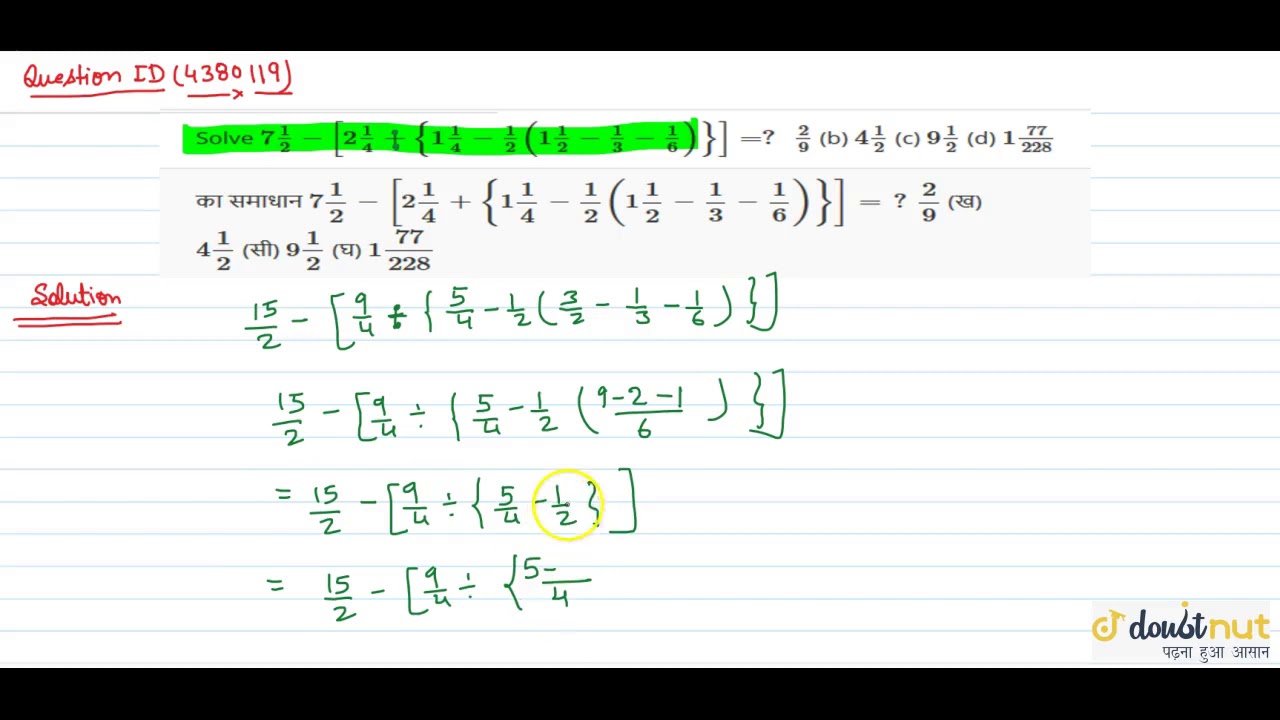 Question ID (4380119)
Solve 7 1/2 − [2 1/4 ÷ {1 1/4 − 1/2 (1 1/2 − 1/3 − 1/6)}] =? 2/9 (b) 4 1/2 (c) 9 1/2 (d) 1 77/228
का समाधान 7 1/2 − [2 1/4 + {1 1/4 − 1/2 (1 1/2 − 1/3 − 1/6)}] = ? 2/9 (ख)
4 1/2 (सी) 9 1/2 (घ) 1 77/228
Solution
15/2 − [9/4 ÷ {5/4 − 1/2 (3/2 − 1/3 − 1/6)}]
15/2 − [9/4 ÷ {5/4 − 1/2 ((9−2−1)/6)}]
= 15/2 − [9/4 ÷ {5/4 − 1/2}]
= 15/2 − [9/4 ÷ {5−/4
doubtnut
पढ़ना हुआ आसान